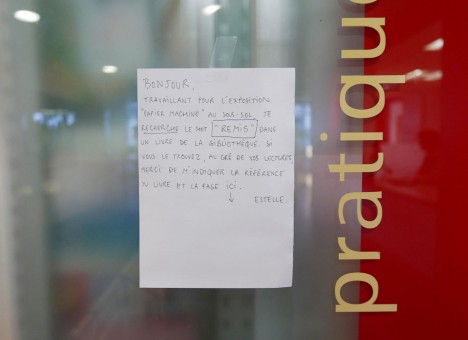 BONJOUR,
TRAVAILLANT POUR L'EXPOSITION
"PAPIER MACHINE" AU SOUS-SOL, JE
RECHERCHE LE MOT "REMIS" DANS
UN LIVRE DE LA BIBLIOTHEQUE. SI
VOUS LE TROUVEZ, AU GRÉ DE VOS LECTURES
MERCI DE M'INDIQUER LA RÉFÉRENCE
DU LIVRE ET LA PAGE ICI.
↓ ESTELLE
pratique